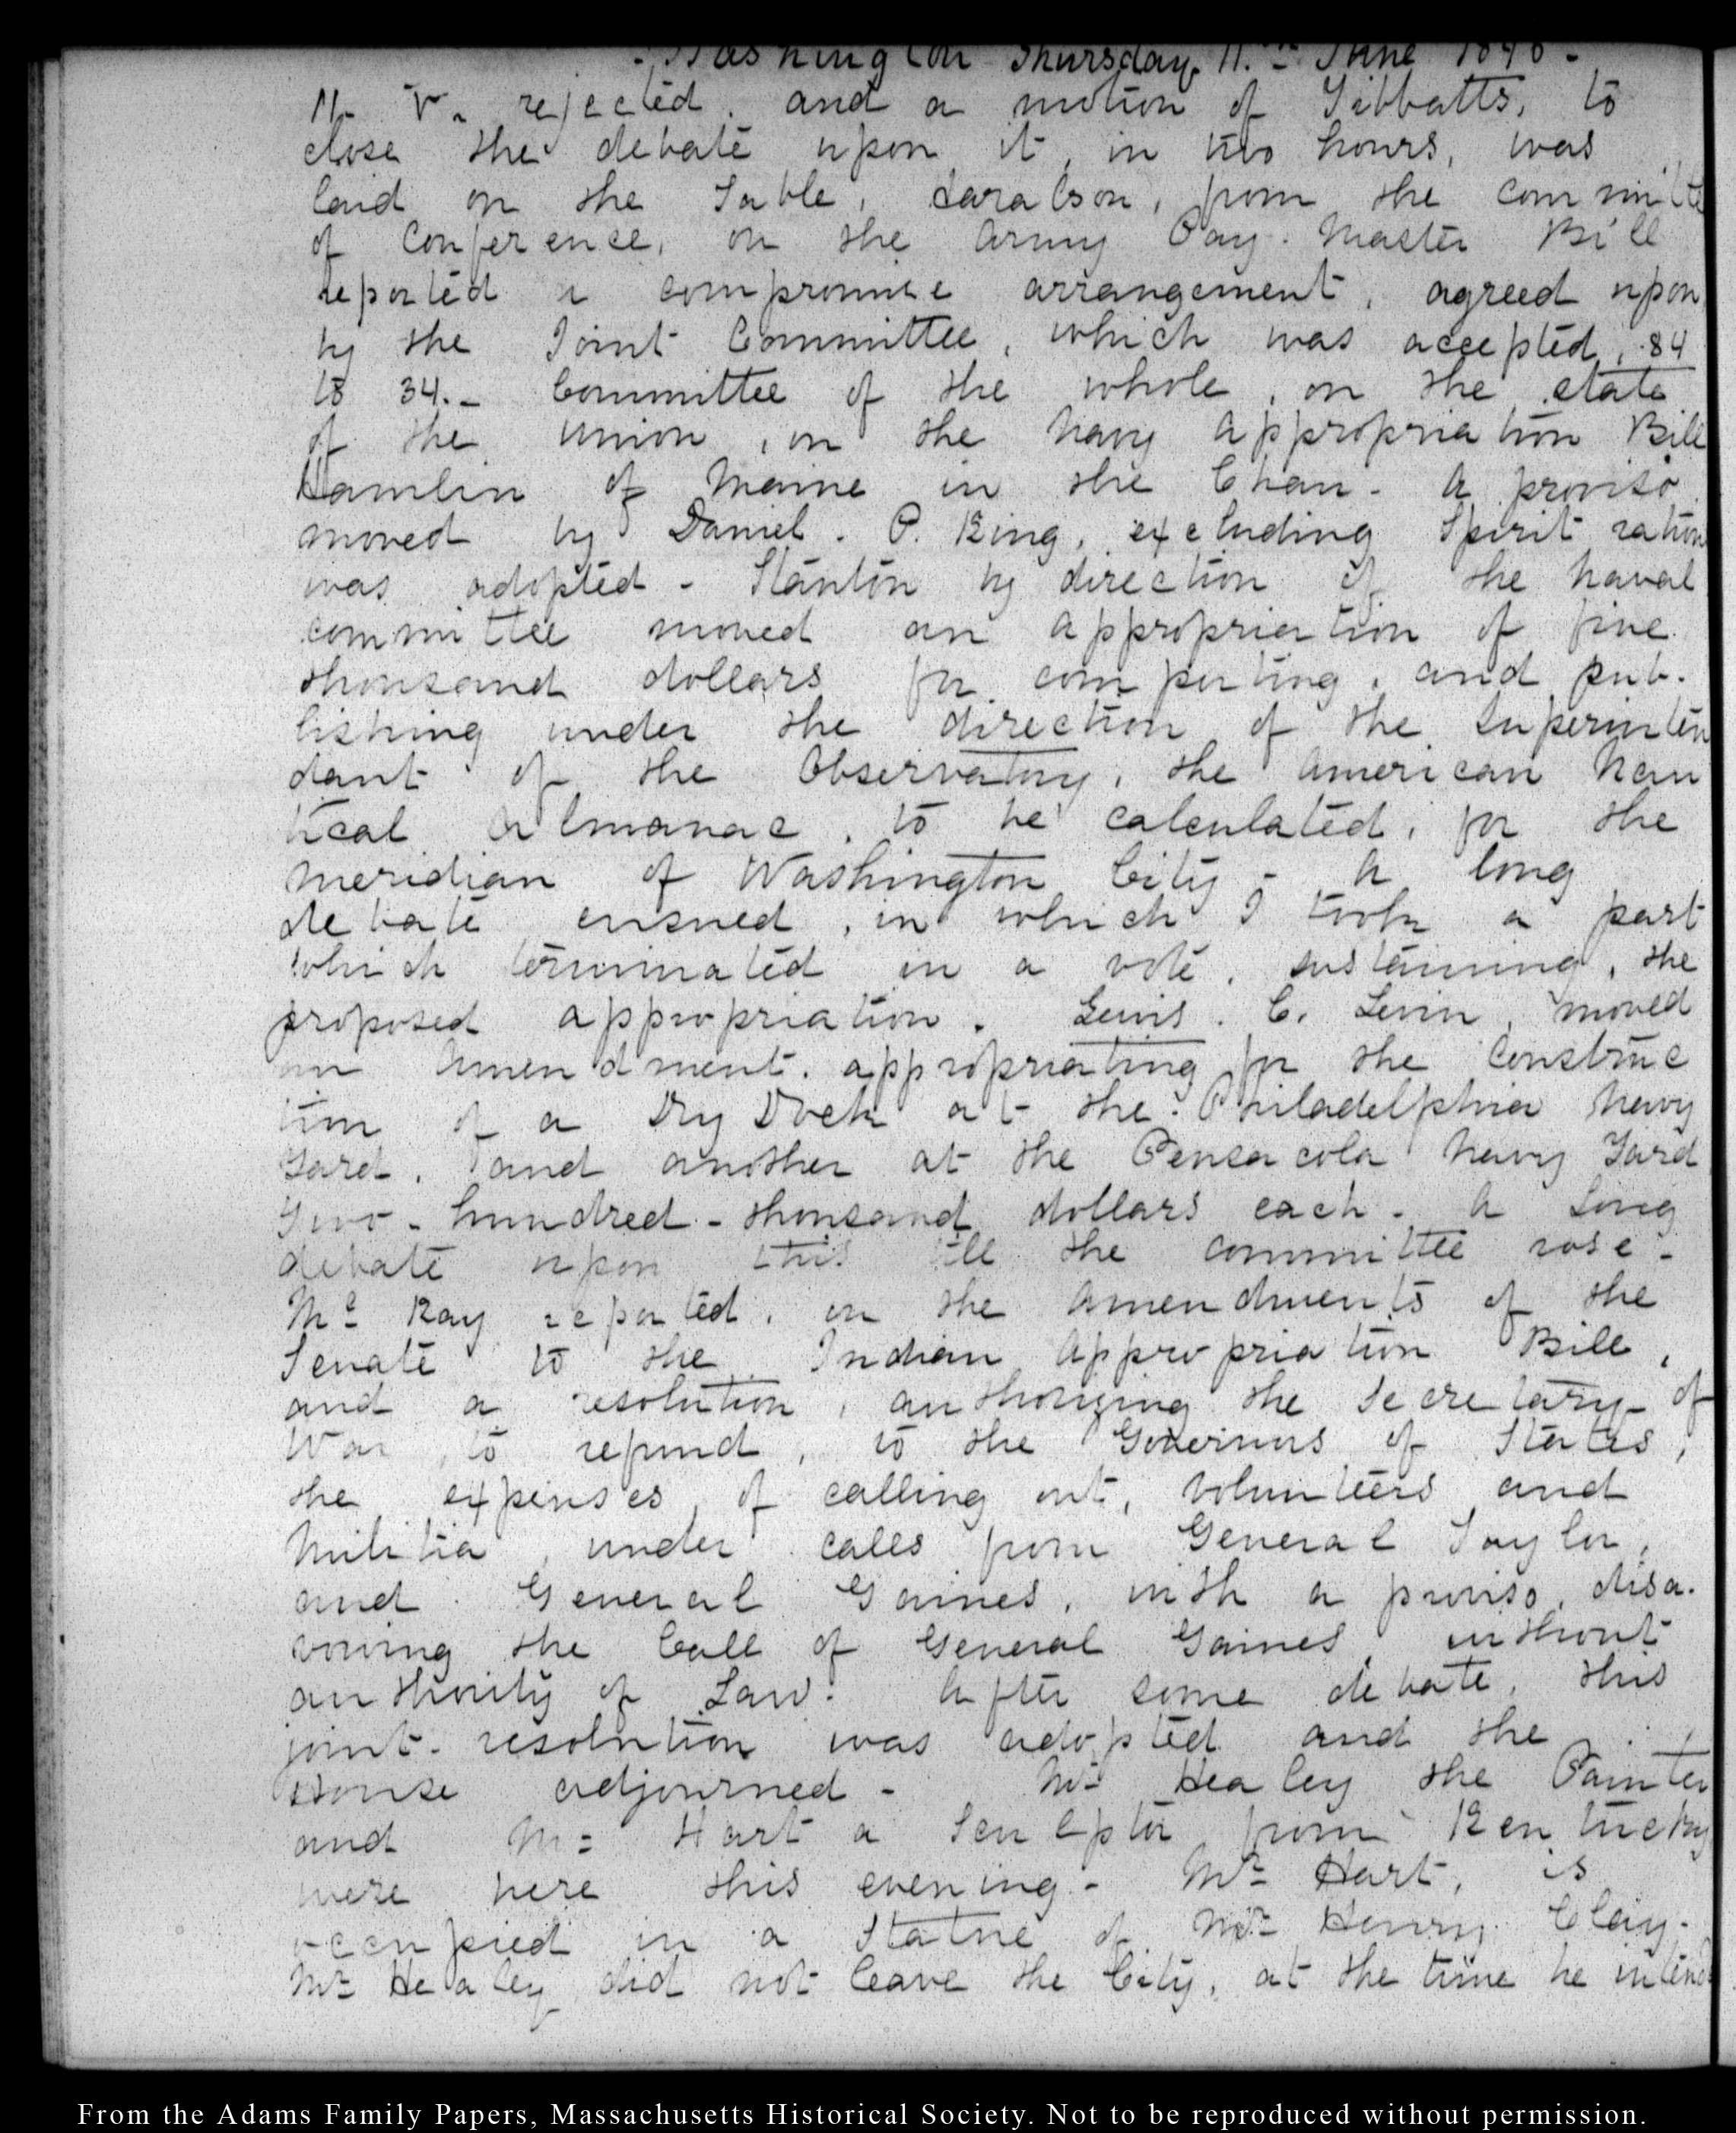 Washington Thursday 11.th June 1846 -
11. V. rejected. and a motion of Tibbatts, to
close the debate upon it, in two hours, was
laid on the Table, Haralson, from the committe
of Conference, on the Army Pay-Master Bill
reported a compromise arrangement, agreed upon
by the Joint Committee, which was accepted, 84
to 34.- Committee of the whole, on the state
of the union, on the Navy Appropriation Bill
Hamlin of Maine in the Chair - A proviso
moved by Daniel. P. King, excluding Spirit ration
was adopted - Stanton by direction of the Naval
committee moved an appropriation of five
thousand dollars for computing, and pub-
lishing under the direction of the Superinten
dant of the Observatory, the American Nau
tical Almanac, to be calculated, for the
meridian of Washington City - A long
debate ensued, in which I took a part
which terminated in a vote, sustaining, the
proposed appropriation. Lewis. C. Levin, moved
an Amendment. appropriating for the Construc
tion of a Dry Dock at the Philadelphia Navy
Yard, and another at the Pensacola Navy Yard
Two-hundred-thousand dollars each - A long
debate upon this till the committee rose -
Mc Kay reported, on the Amendments of the
Senate to the Indian Appropriation Bill,
and a resolution, authorizing the Secretary of
War, to refund, to the Governors of States,
the expenses, of calling out, volunteers and
Militia, under calls from General Taylor,
and General Gaines, with a proviso, disa-
vowing the Call of General Gaines, without
authority of Law. After some debate, this
joint-resolution was adopted and the
House adjourned - Mr Healey the Painter
and Mr Hart a Sculptor from Kentucky
were here this evening - Mr Hart, is
occupied in a Statue of Mr Henry Clay -
Mr Healey did not leave the City, at the time he intend
From the Adams Family Papers, Massachusetts Historical Society. Not to be reproduced without permission.